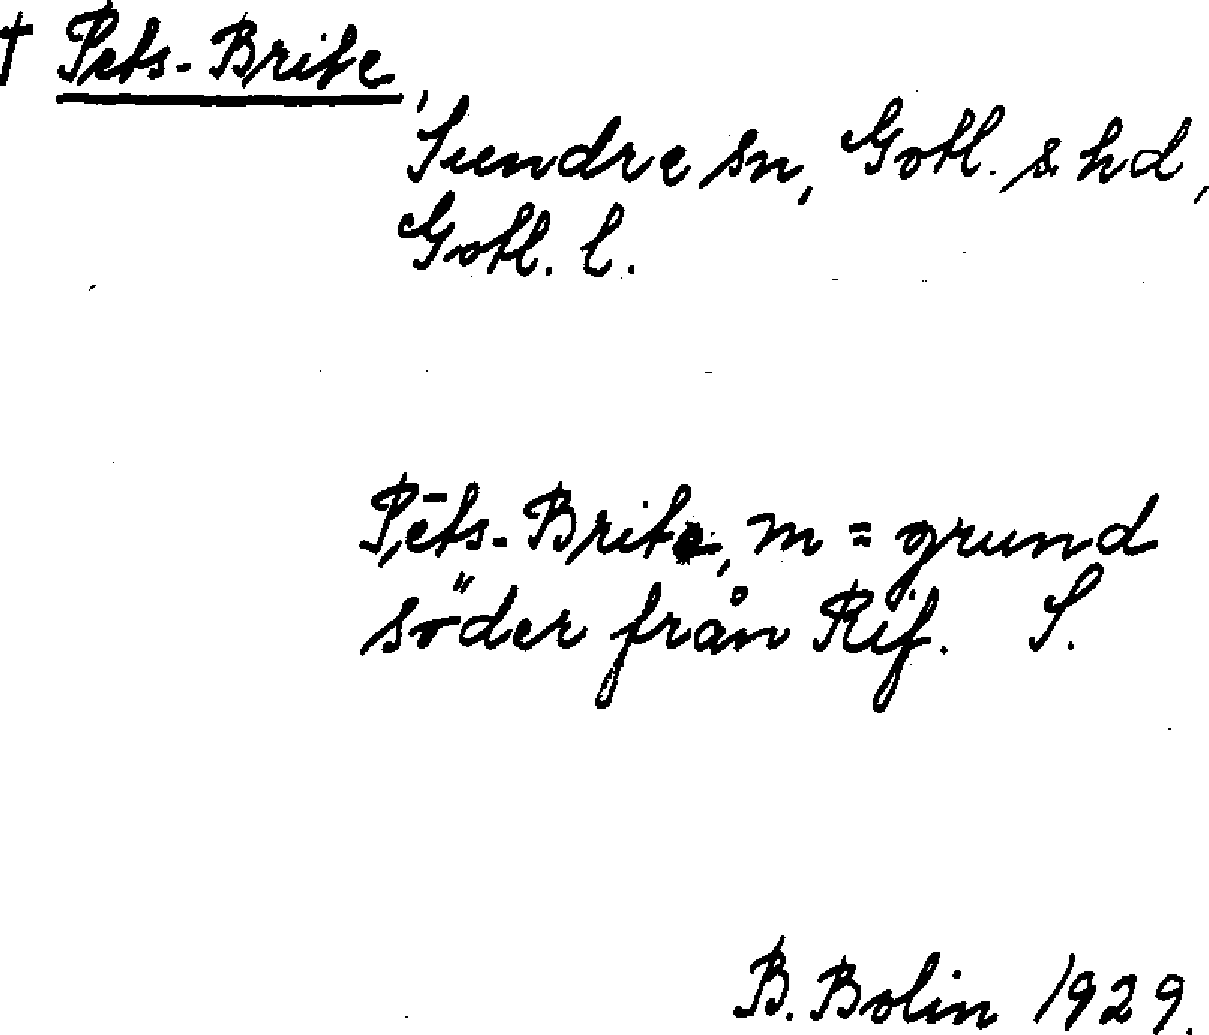 † Pets-Brite,
Sundre sn, Gotl. s. hd,
Gotl. l.
Pēts-Brite, m = grund
söder från Rif. S.
B. Bolin 1929.